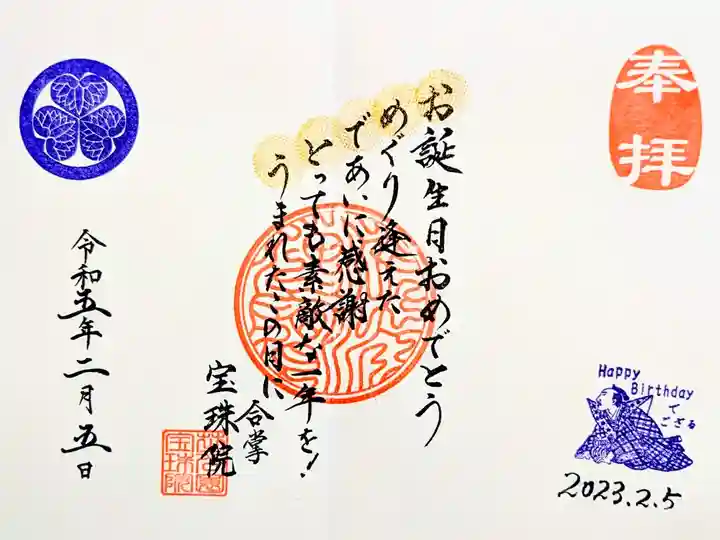 奉拝
お誕生日おめでとう
めぐり逢えた
であいに感謝
とっても素敵な一年を!
うまれたこの日に
合掌
宝珠院
令和五年二月五日
Happy
Birthday
で
ござる
2023.2.5